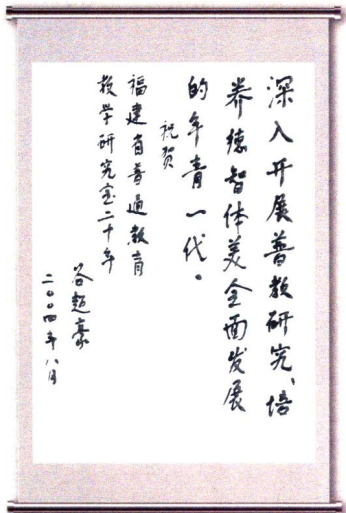 深入开展普教研究、培
养德智体美全面发展
的年青一代。
祝贺
福建省普通教育
教学研究室二十年
谷超豪
二〇〇四年八月